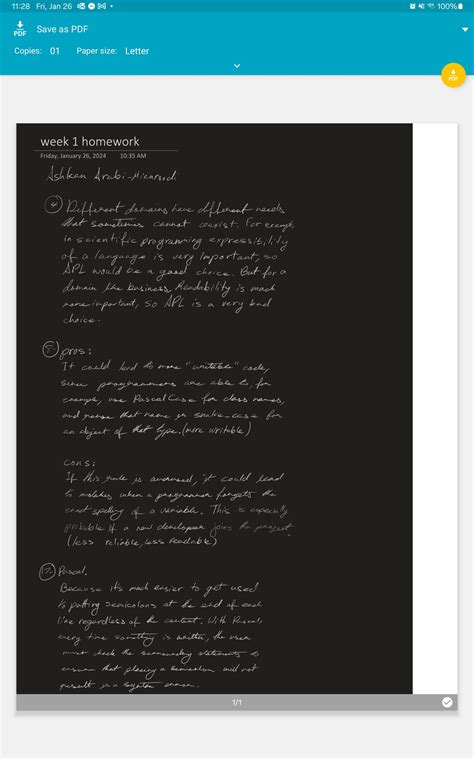 11:28 Fri, Jan 26
100%
Save as PDF
PDF
Copies: 01 Paper size: Letter
PDF
week 1 homework
Friday, January 26, 2024 10:35 AM
Ashkan Arabi
4 Different domains have different needs
that sometimes cannot coexist. For example,
in scientific programming expressibility
of a language is very important, so
APL would be a good choice. But for a
domain like business, Readability is much
more important, so APL is a very bad
choice.
8 pros:
It could lead to more "writable" code,
since programmers are able to, for
example, use PascalCase for class names,
and reuse that name in snake-case for
an object of that type. (more writable)
cons:
If this rule is overused, it could lead
to mistakes when a programmer forgets the
exact spelling of a variable. This is especially
probable if a new developer joins the project.
(less reliable, less readable)
12 Pascal.
Because it's much easier to get used
to putting semicolons at the end of each
line regardless of the context. With Pascal,
every time something is written, the user
must check the surrounding statements to
ensure that placing a semicolon will not
result in a syntax error.
1/1